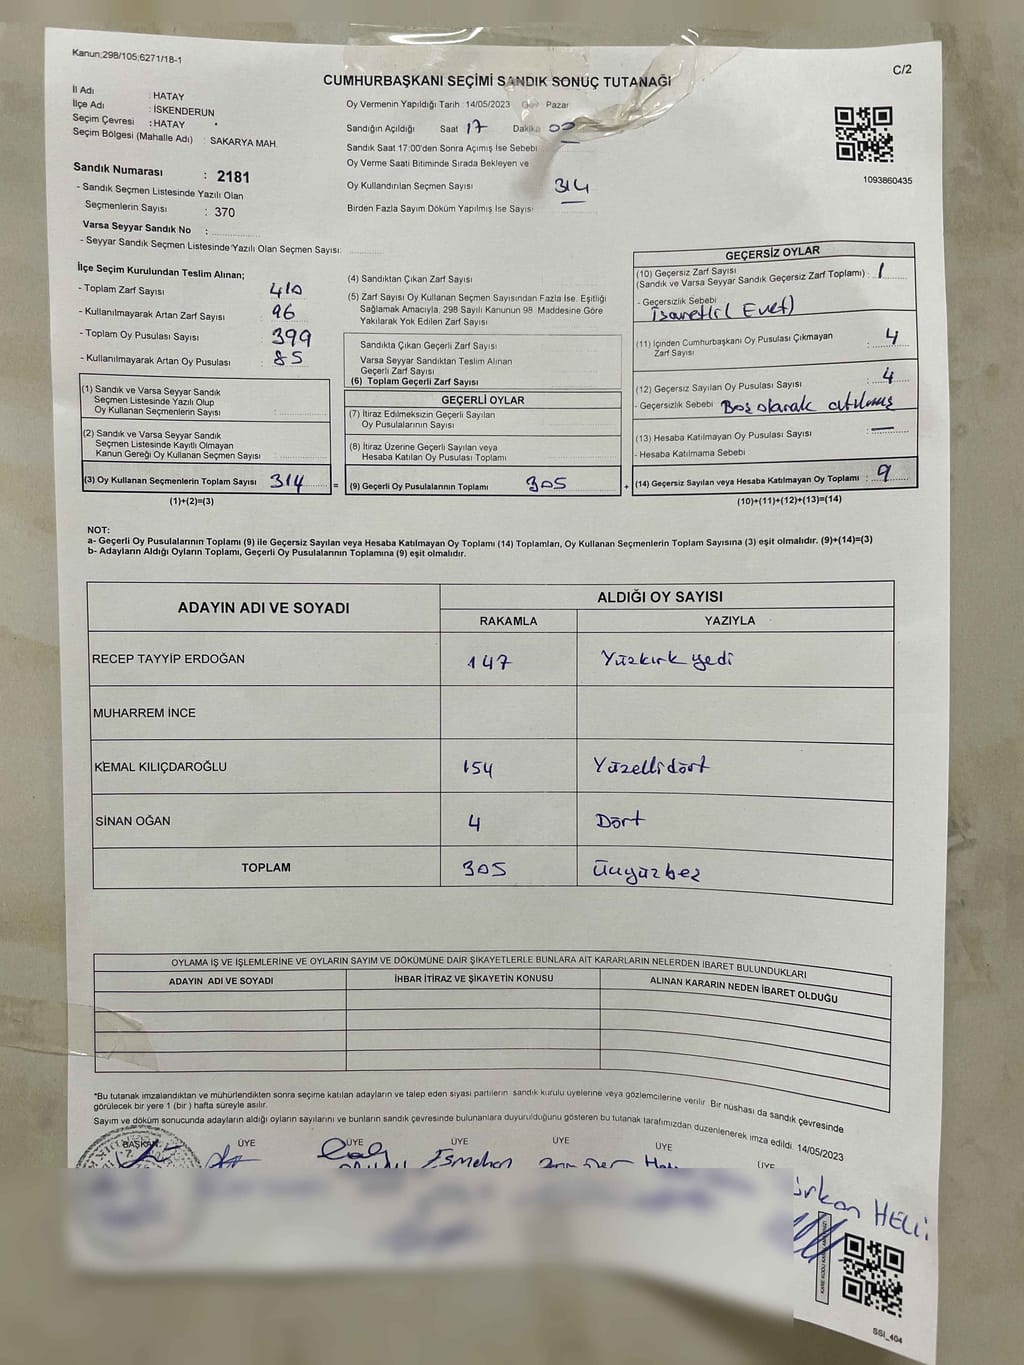 Kanun:298/105;6271/18-1
C/2
CUMHURBAŞKANI SEÇİMİ SANDIK SONUÇ TUTANAĞI
İl Adı : HATAY
İlçe Adı : İSKENDERUN
Seçim Çevresi : HATAY
Seçim Bölgesi (Mahalle Adı) : SAKARYA MAH.
Oy Vermenin Yapıldığı Tarih :14/05/2023 Pazar
Sandığın Açıldığı Saat 17 Dakika 00
Sandık Saat 17:00'den Sonra Açımış İse Sebebi :
Oy Verme Saati Bitiminde Sırada Bekleyen ve
Oy Kullandırılan Seçmen Sayısı 314
Birden Fazla Sayım Döküm Yapılmış İse Sayısı :
1093860435
Sandık Numarası : 2181
- Sandık Seçmen Listesinde Yazılı Olan
Seçmenlerin Sayısı : 370
Varsa Seyyar Sandık No :
- Seyyar Sandık Seçmen Listesinde Yazılı Olan Seçmen Sayısı:
İlçe Seçim Kurulundan Teslim Alınan;
- Toplam Zarf Sayısı : 410
- Kullanılmayarak Artan Zarf Sayısı : 96
- Toplam Oy Pusulası Sayısı : 399
- Kullanılmayarak Artan Oy Pusulası : 85
(1) Sandık ve Varsa Seyyar Sandık
Seçmen Listesinde Yazılı Olup
Oy Kullanan Seçmenlerin Sayısı :
(2) Sandık ve Varsa Seyyar Sandık
Seçmen Listesinde Kayıtlı Olmayan
Kanun Gereği Oy Kullanan Seçmen Sayısı :
(3) Oy Kullanan Seçmenlerin Toplam Sayısı : 314 =
(1)+(2)=(3)
(4) Sandıktan Çıkan Zarf Sayısı :
(5) Zarf Sayısı Oy Kullanan Seçmen Sayısından Fazla İse, Eşitliği
Sağlamak Amacıyla, 298 Sayılı Kanunun 98. Maddesine Göre
Yakılarak Yok Edilen Zarf Sayısı :
Sandıkta Çıkan Geçerli Zarf Sayısı :
Varsa Seyyar Sandıktan Teslim Alınan
Geçerli Zarf Sayısı :
(6) Toplam Geçerli Zarf Sayısı :
GEÇERLİ OYLAR
(7) İtiraz Edilmeksizin Geçerli Sayılan
Oy Pusulalarının Sayısı :
(8) İtiraz Üzerine Geçerli Sayılan veya
Hesaba Katılan Oy Pusulası Toplamı :
(9) Geçerli Oy Pusulalarının Toplamı : 305 +
GEÇERSİZ OYLAR
(10) Geçersiz Zarf Sayısı
(Sandık ve Varsa Seyyar Sandık Geçersiz Zarf Toplamı) : 1
- Geçersizlik Sebebi
İşaretli (Evet)
(11) İçinden Cumhurbaşkanı Oy Pusulası Çıkmayan
Zarf Sayısı : 4
(12) Geçersiz Sayılan Oy Pusulası Sayısı : 4
- Geçersizlik Sebebi Boş olarak atılmış
(13) Hesaba Katılmayan Oy Pusulası Sayısı : —
- Hesaba Katılmama Sebebi
(14) Geçersiz Sayılan veya Hesaba Katılmayan Oy Toplamı : 9
(10)+(11)+(12)+(13)=(14)
NOT:
a- Geçerli Oy Pusulalarının Toplamı (9) ile Geçersiz Sayılan veya Hesaba Katılmayan Oy Toplamı (14) Toplamları, Oy Kullanan Seçmenlerin Toplam Sayısına (3) eşit olmalıdır. (9)+(14)=(3)
b- Adayların Aldığı Oyların Toplamı, Geçerli Oy Pusulalarının Toplamına (9) eşit olmalıdır.
ADAYIN ADI VE SOYADI
ALDIĞI OY SAYISI
RAKAMLA YAZIYLA
RECEP TAYYİP ERDOĞAN 147 Yüzkırk yedi
MUHARREM İNCE
KEMAL KILIÇDAROĞLU 154 Yüzelli dört
SİNAN OĞAN 4 Dört
TOPLAM 305 Üçyüz beş
OYLAMA İŞ VE İŞLEMLERİNE VE OYLARIN SAYIM VE DÖKÜMÜNE DAİR ŞİKAYETLERLE BUNLARA AİT KARARLARIN NELERDEN İBARET BULUNDUKLARI
ADAYIN ADI VE SOYADI İHBAR İTİRAZ VE ŞİKAYETİN KONUSU ALINAN KARARIN NEDEN İBARET OLDUĞU
*Bu tutanak imzalandıktan ve mühürlendikten sonra seçime katılan adayların ve talep eden siyasi partilerin sandık kurulu üyelerine veya gözlemcilerine verilir. Bir nüshası da sandık çevresinde
görülecek bir yere 1 (bir ) hafta süreyle asılır.
Sayım ve döküm sonucunda adayların aldığı oyların sayılarını ve bunların sandık çevresinde bulunanlara duyurulduğunu gösteren bu tutanak tarafımızdan düzenlenerek imza edildi. 14/05/2023
BAŞKAN ÜYE ÜYE ÜYE ÜYE ÜYE ÜYE
HELLİ
SSI_404